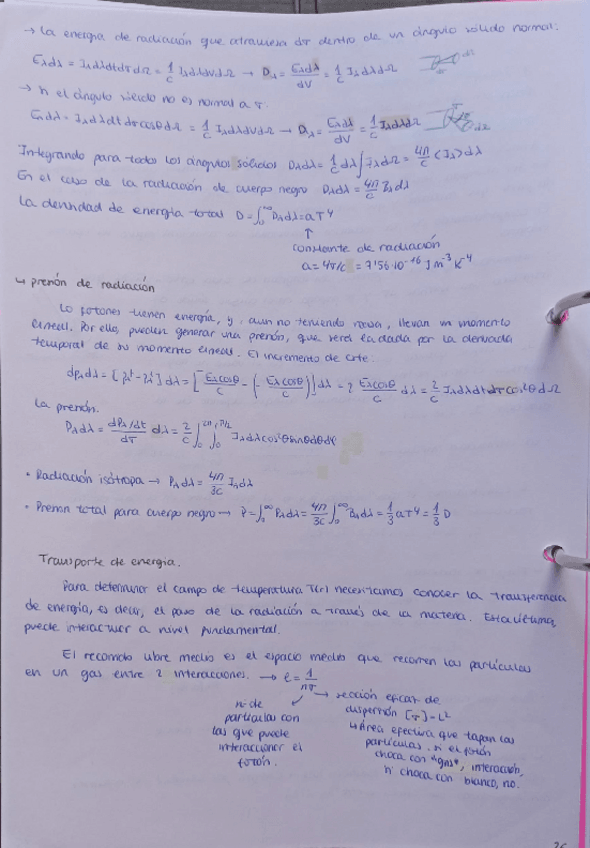 → La energía de radiación que atraviesa dσ dentro de un ángulo sólido normal:
Eλdλ = IλdλdtdσdΩ = 1/c IλdλdVdΩ → Dλ = Eλdλ/dV = 1/c IλdλdΩ
→ Si el ángulo sólido no es normal a σ.
Eλdλ = Iλdλdtdσcosθ dΩ = 1/c IλdλdVdΩ → Dλ = Eλdλ/dV = 1/c IλdλdΩ
Integrando para todos los ángulos sólidos Dλdλ = 1/c dλ ∫ IλdΩ = 4π/c <Iλ> dλ
En el caso de la radiación de cuerpo negro Dλdλ = 4π/c Bλdλ
La densidad de energía total D = ∫₀^∞ Dλdλ = aT⁴
↑
constante de radiación
a = 4σ/c = 7'56·10⁻¹⁶ J m⁻³ K⁻⁴
↳ presión de radiación
Lo fotones tienen energía, y, aun no teniendo masa, llevan un momento
lineal. Por ello, pueden generar una presión, que será la dada por la derivada
temporal de su momento lineal. El incremento de éste:
dpλdλ = [ ] dλ = [Eλcosθ/c - (- Eλcosθ/c)] dλ = 2 Eλcosθ/c dλ = 2/c Iλdλdtdσcos²θdΩ
La presión.
Pλdλ = dpλ/dt / dσ dλ = 2/c ∫₀^2π ∫₀^π/2 Iλdλcos²θsinθdθdφ
• Radiación isótropa → Pλdλ = 4π/3c Iλdλ
• Presión total para cuerpo negro → P = ∫₀^∞ Pλdλ = 4π/3c ∫₀^∞ Bλdλ = 1/3 aT⁴ = 1/3 D
Transporte de energía.
Para determinar el campo de temperatura T(r) necesitamos conocer la transferencia
de energía, es decir, el paso de la radiación a través de la materia. Esta última,
puede interactuar a nivel fundamental.
El recorrido libre medio es el espacio medio que recorren las partículas
en un gas entre 2 interacciones. → ℓ = 1/nσ
nº de
partículas con
las que puede
interaccionar el
fotón.
→ sección eficaz de
dispersión [σ] = L²
↳ Área efectiva que tapan las
partículas. Si el fotón
choca con "gris", interacción,
si choca con blanco, no.